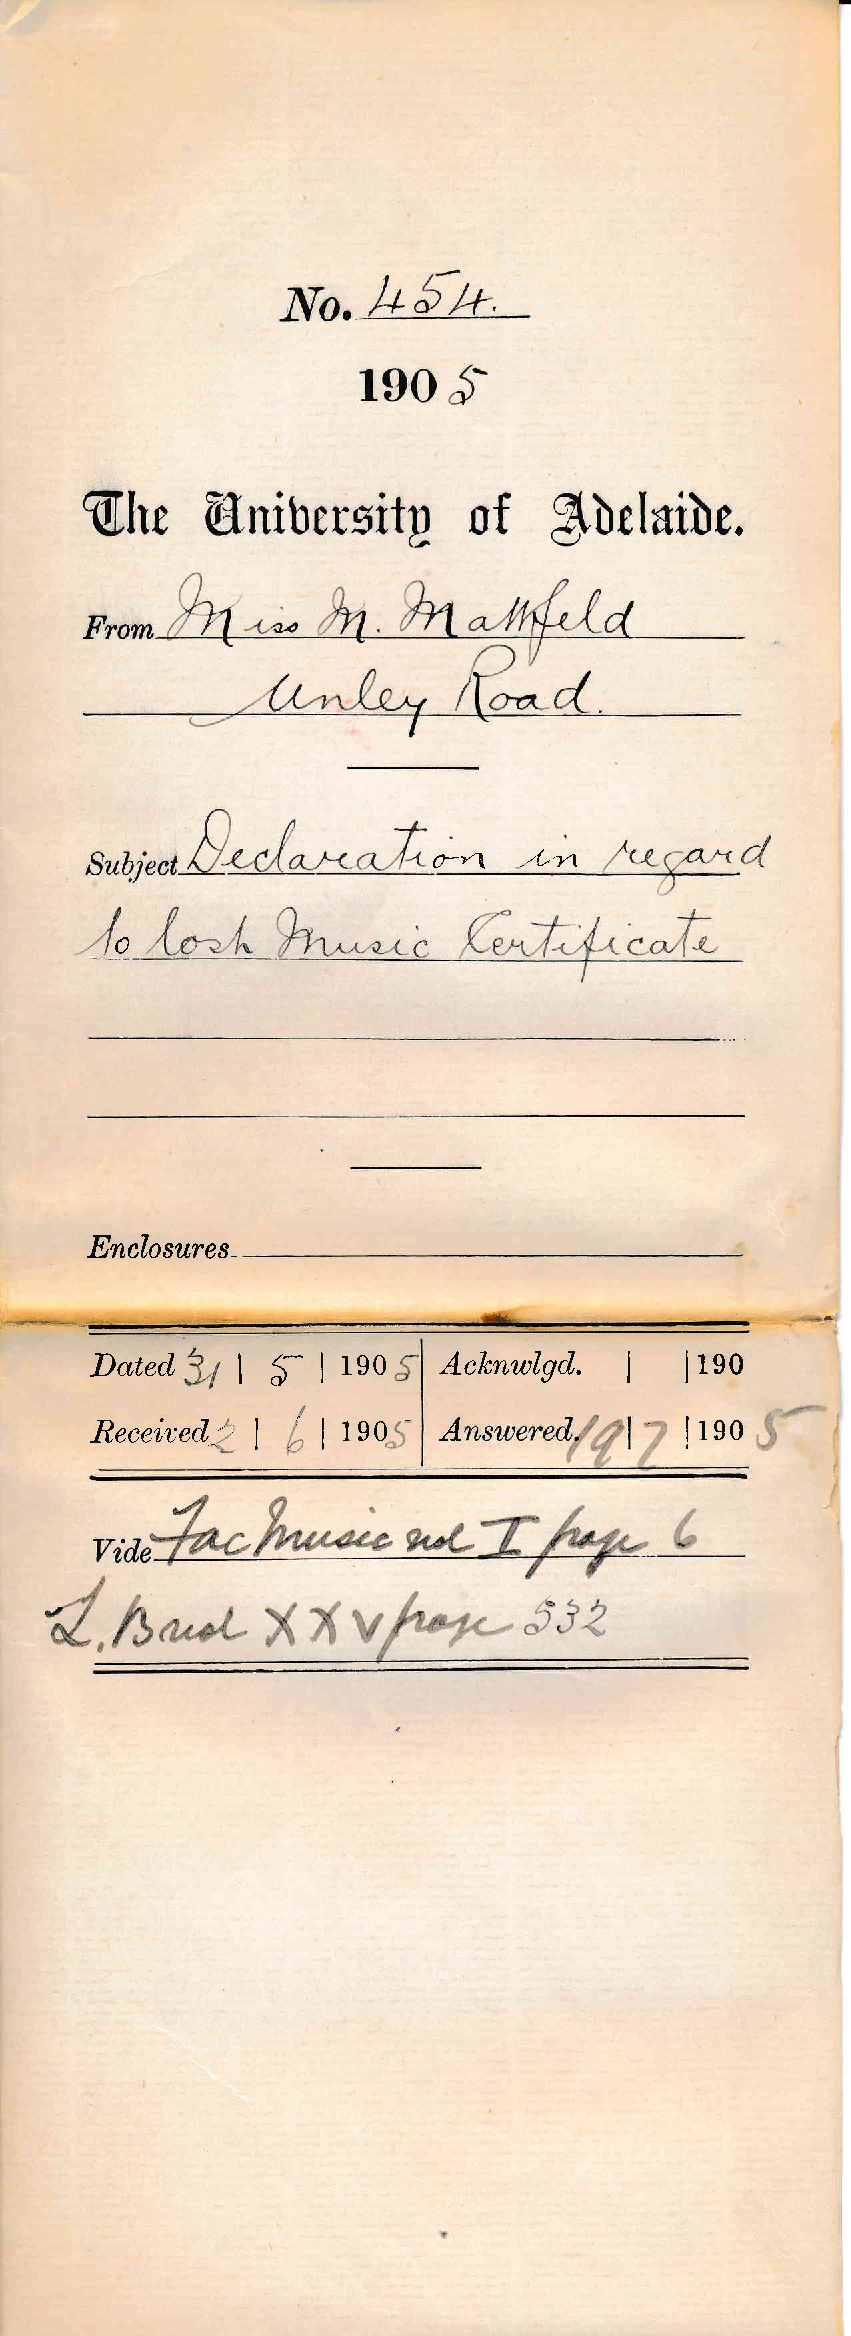 No. 454.
1905
The University of Adelaide.
From Miss M. Mattfeld
Unley Road.
Subject Declaration in regard
to lost Music Certificate
Enclosures
Dated 31 | 5 | 1905 Acknwlgd. | | 190
Received 2 | 6 | 1905 Answered. 19 | 7 | 1905
Vide Fac Music vol I page 6
L. B vol XXV page 532